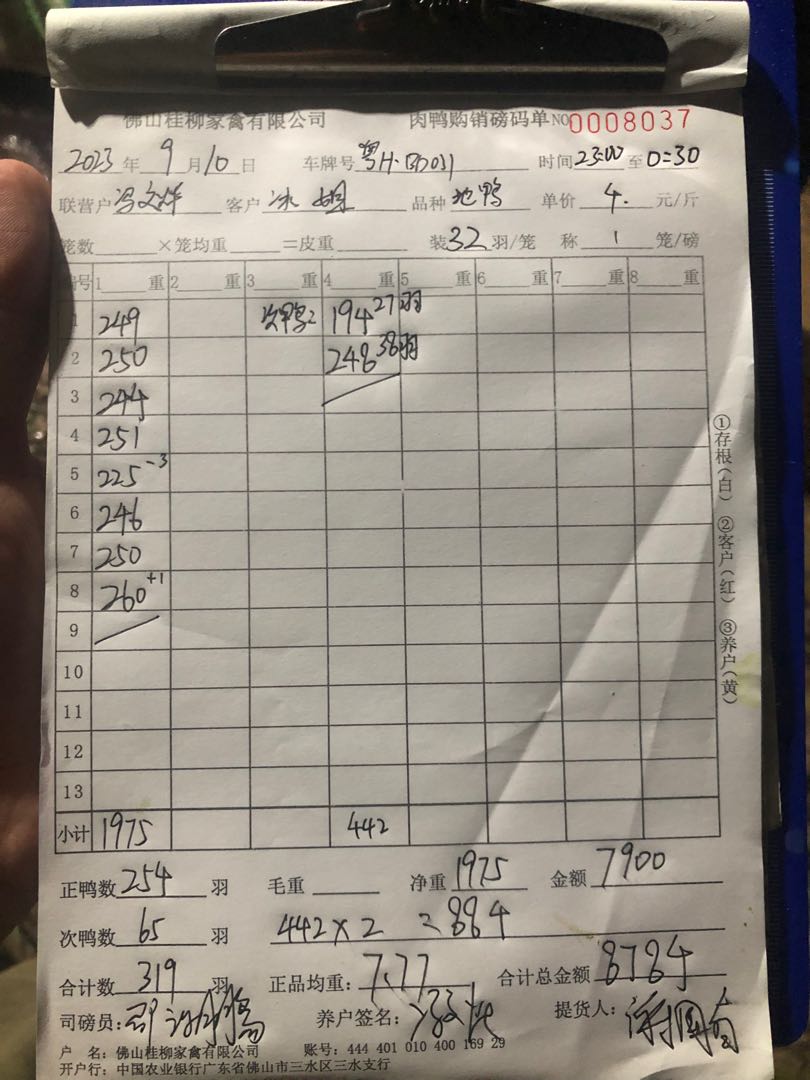 佛山桂柳家禽有限公司 肉鸭购销磅码单 NO 0008037
2023 年 9 月 10 日 车牌号 粤H· 时间 23:00 至 0:30
联营户 冯文 客户 冰姐 品种 地鸭 单价 4. 元/斤
笼数 ×笼均重 =皮重 装 32 羽/笼 称 1 笼/磅
编号 1 重 2 重 3 重 4 重 5 重 6 重 7 重 8 重
1 249 次鸭: 194 27羽
2 250 248 38羽
3 244
4 251
5 225 -3
6 246
7 250
8 260 +1
9
10
11
12
13
小计 1975 442
正鸭数 254 羽 毛重 净重 1975 金额 7900
次鸭数 65 羽 442×2 =884
合计数 319 羽 正品均重: 7.77 合计总金额 8784
司磅员: 养户签名: 提货人:
户 名: 佛山桂柳家禽有限公司 账号: 444 401 010 400 169 29
开户行: 中国农业银行广东省佛山市三水区三水支行
①存根(白) ②客户(红) ③养户(黄)